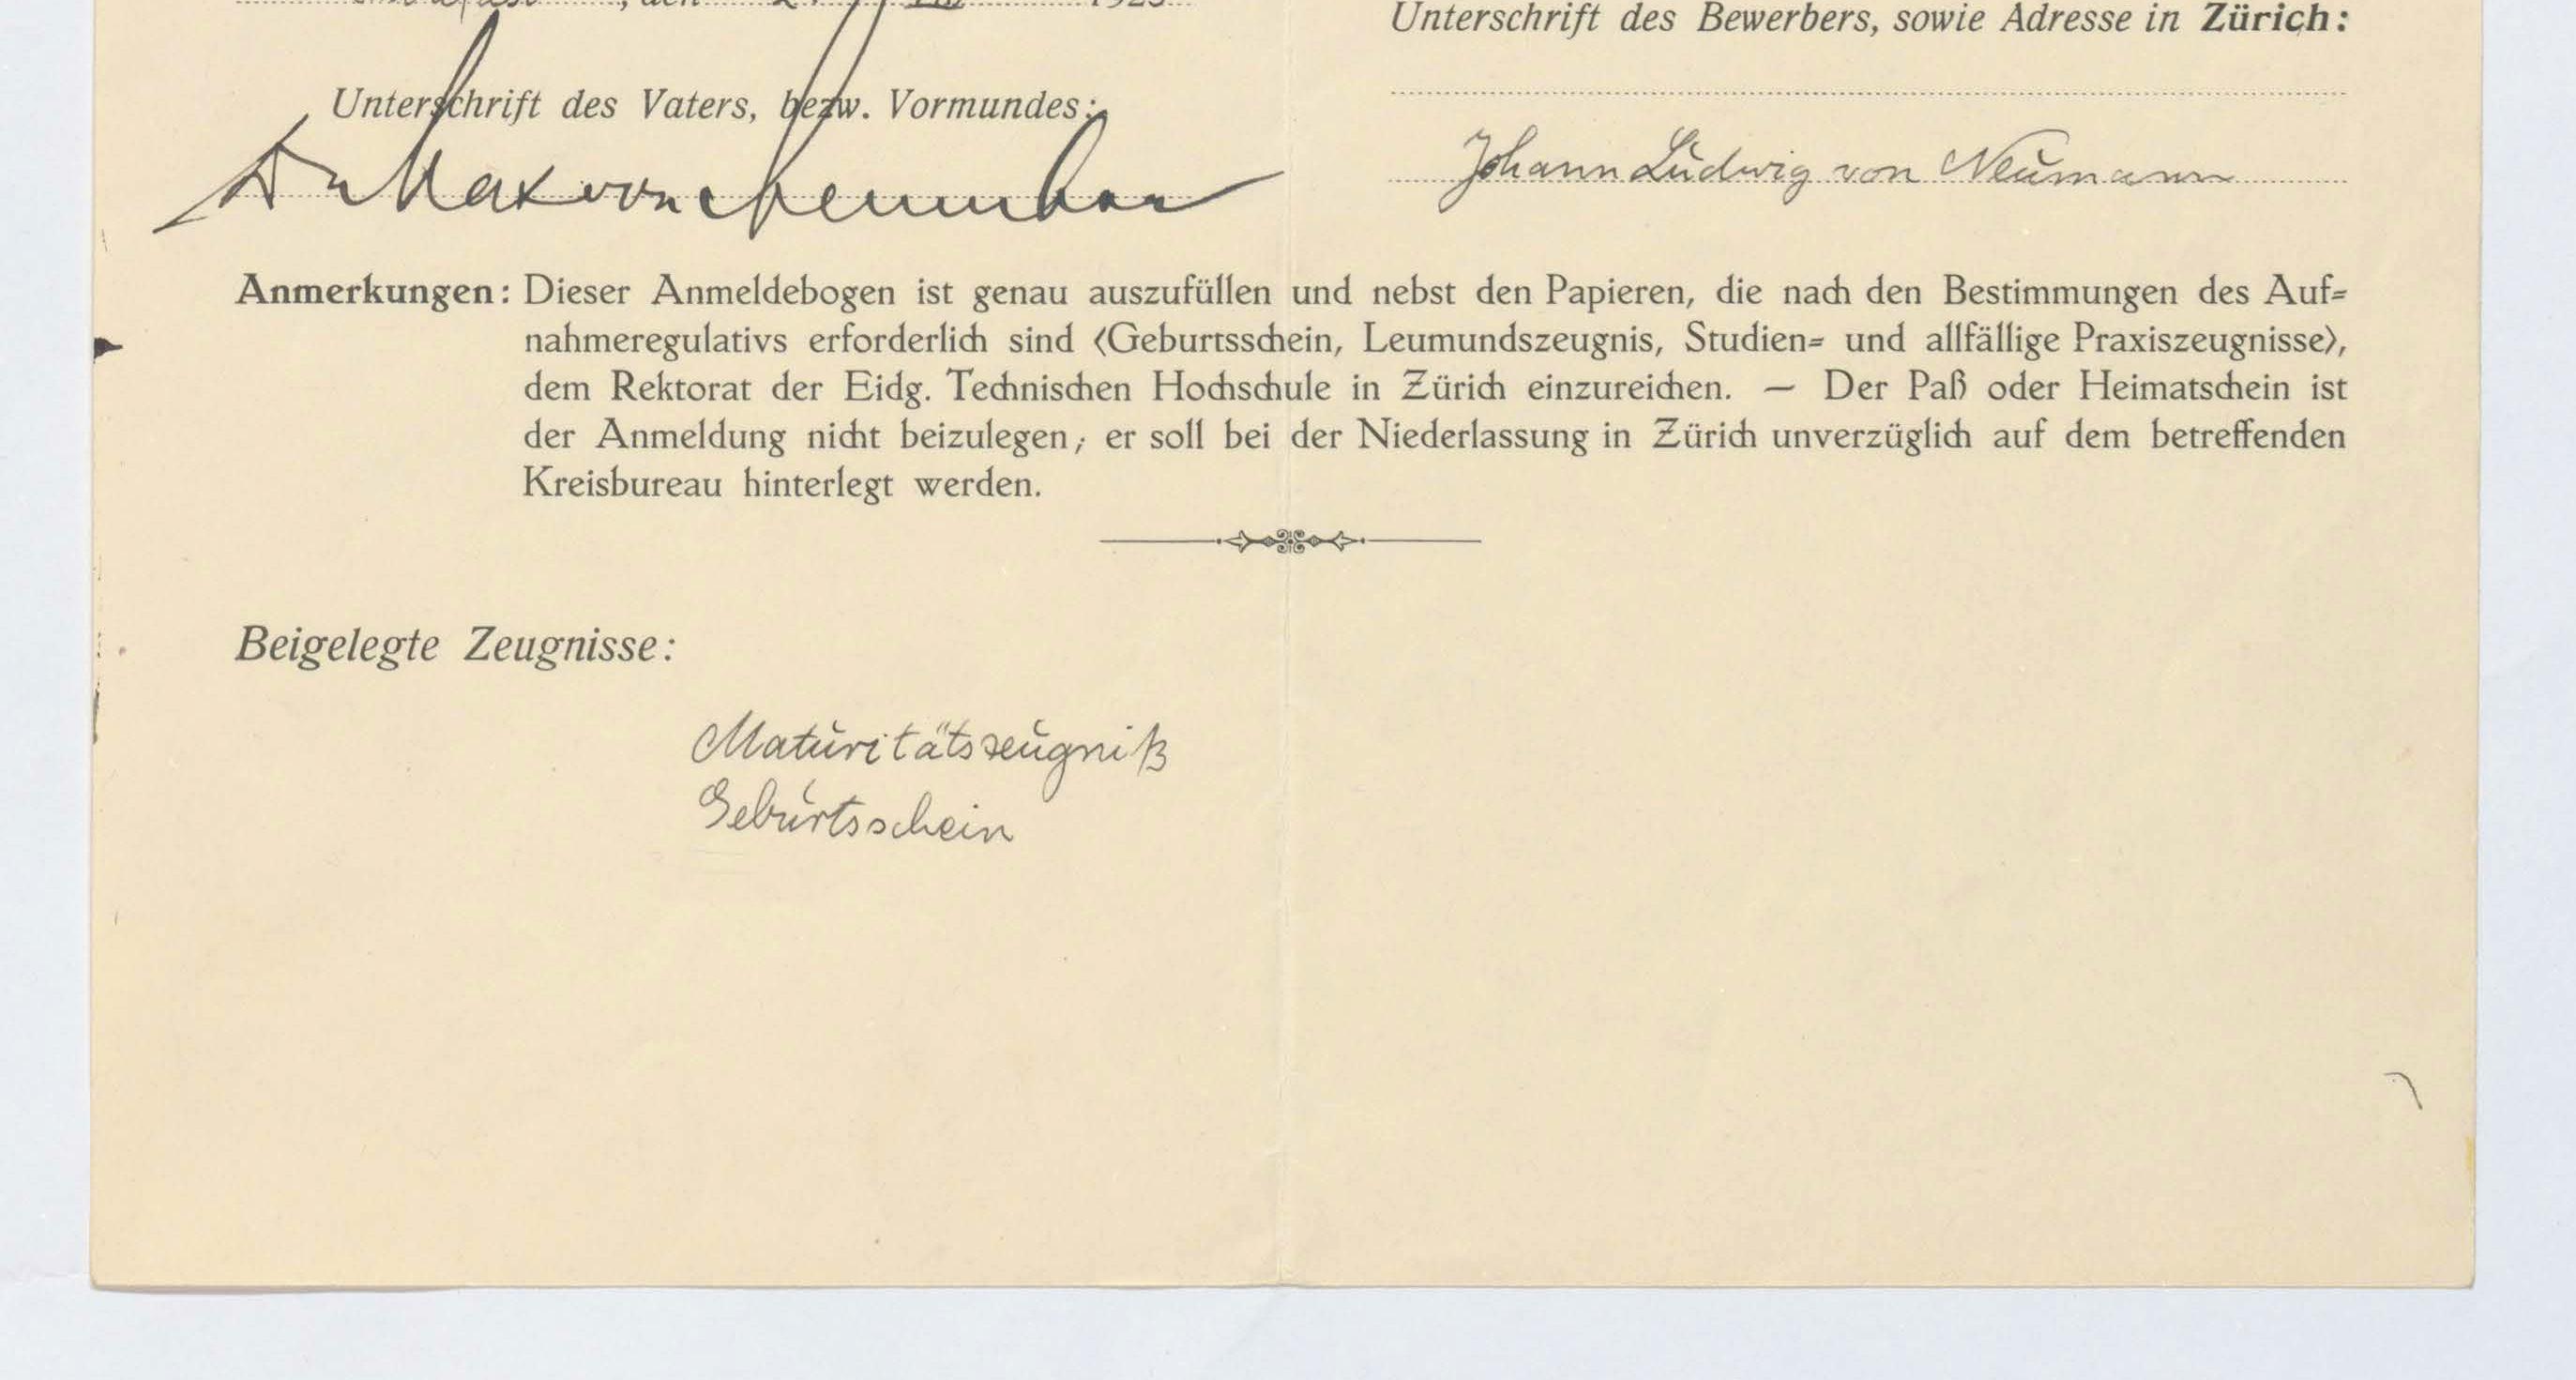 , den 1923
Unterschrift des Bewerbers, sowie Adresse in Zürich:
Unterschrift des Vaters, bezw. Vormundes:
Dr Max von Neumann
Johann Ludwig von Neumann
Anmerkungen: Dieser Anmeldebogen ist genau auszufüllen und nebst den Papieren, die nach den Bestimmungen des Auf=
nahmeregulativs erforderlich sind (Geburtsschein, Leumundszeugnis, Studien= und allfällige Praxiszeugnisse),
dem Rektorat der Eidg. Technischen Hochschule in Zürich einzureichen. — Der Paß oder Heimatschein ist
der Anmeldung nicht beizulegen; er soll bei der Niederlassung in Zürich unverzüglich auf dem betreffenden
Kreisbureau hinterlegt werden.
Beigelegte Zeugnisse:
Maturitätszeugniß
Geburtsschein